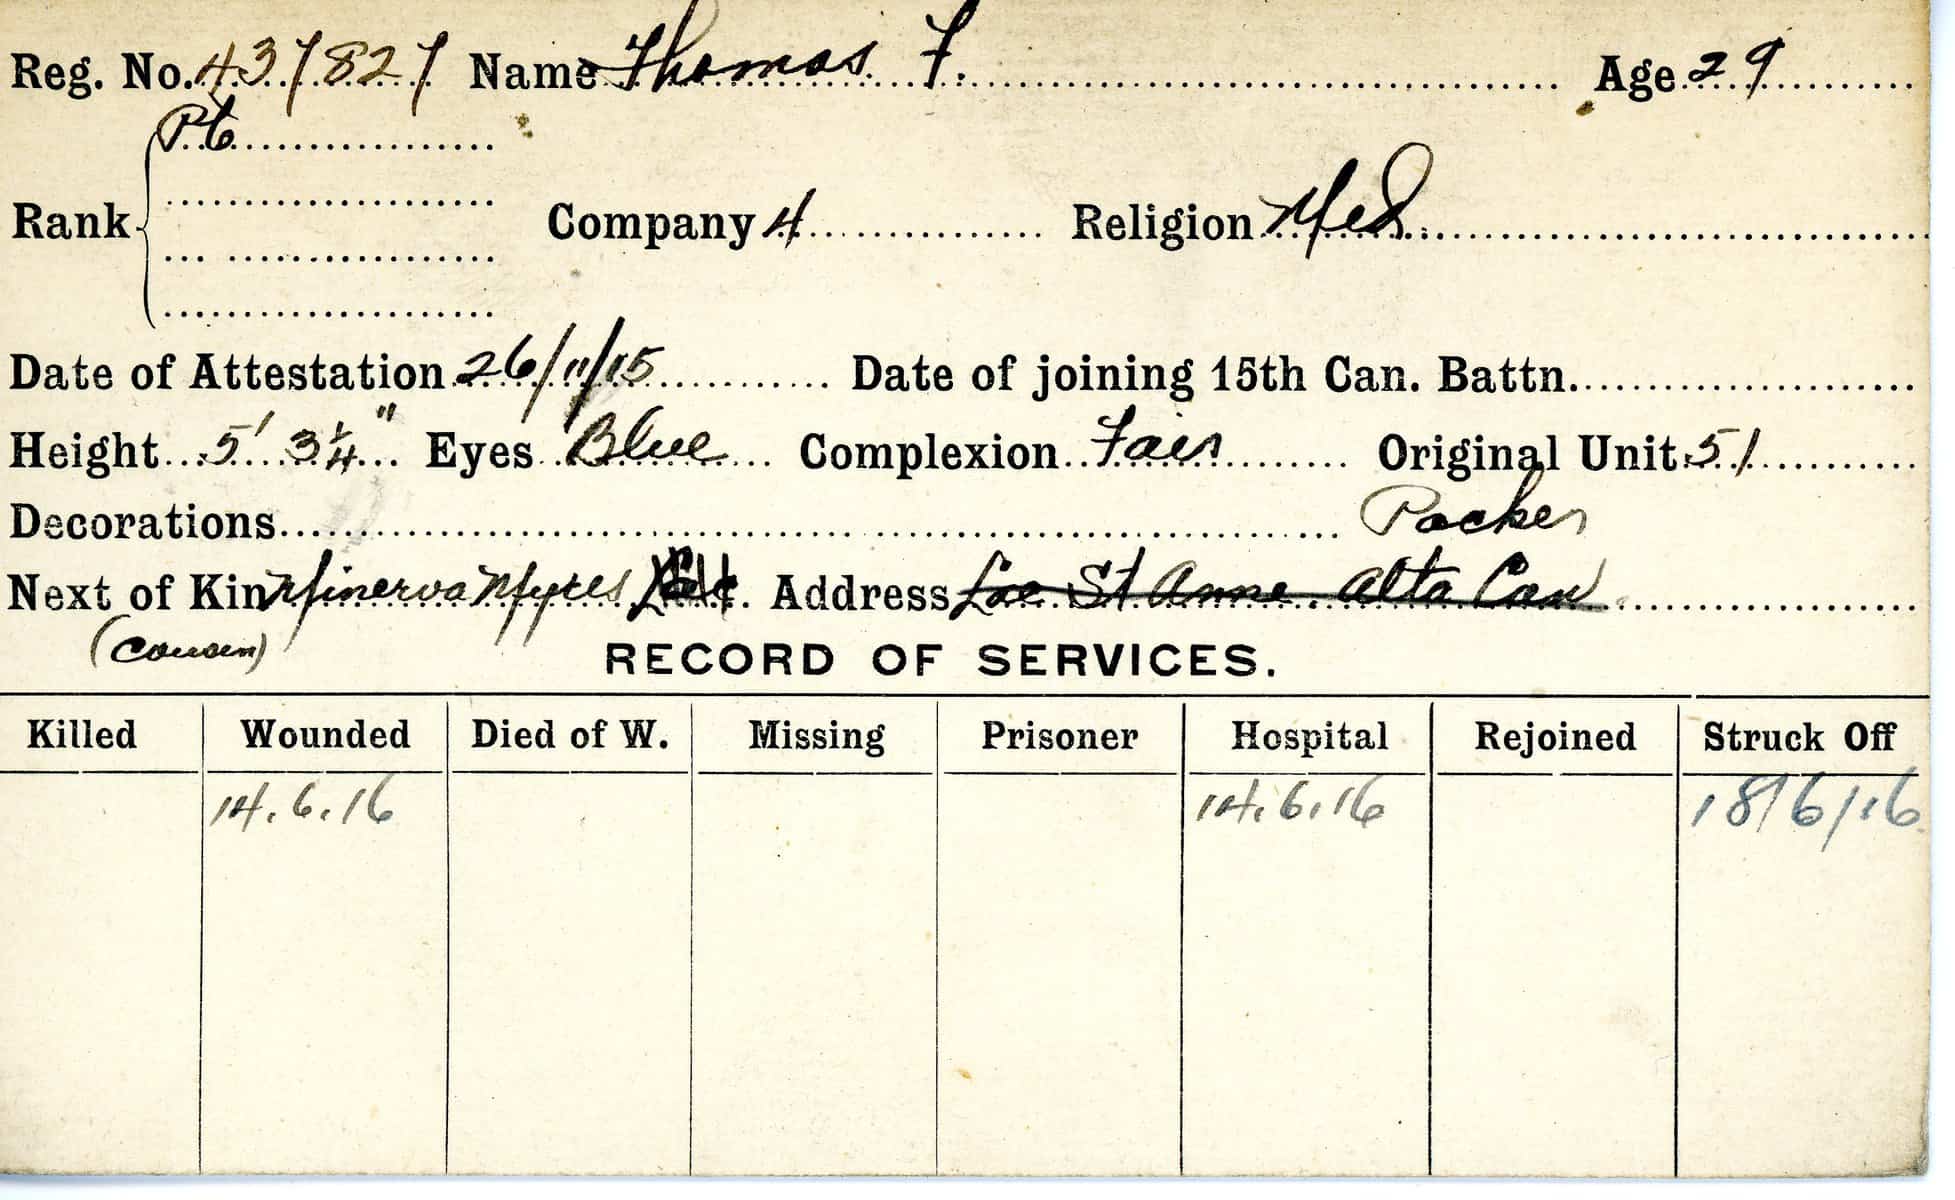 Reg. No. 437827 Name Thomas F. Age 29
Pte
Rank Company 4 Religion
Date of Attestation 26/11/15 Date of joining 15th Can. Battn.
Height 5' 3¼" Eyes Blue Complexion Fair Original Unit 51
Decorations Packer
Next of Kin Minerva Myres Address Lac St Anne. Alta Can
(Cousin) RECORD OF SERVICES.
Killed Wounded Died of W. Missing Prisoner Hospital Rejoined Struck Off
14.6.16 14.6.16 18/6/16